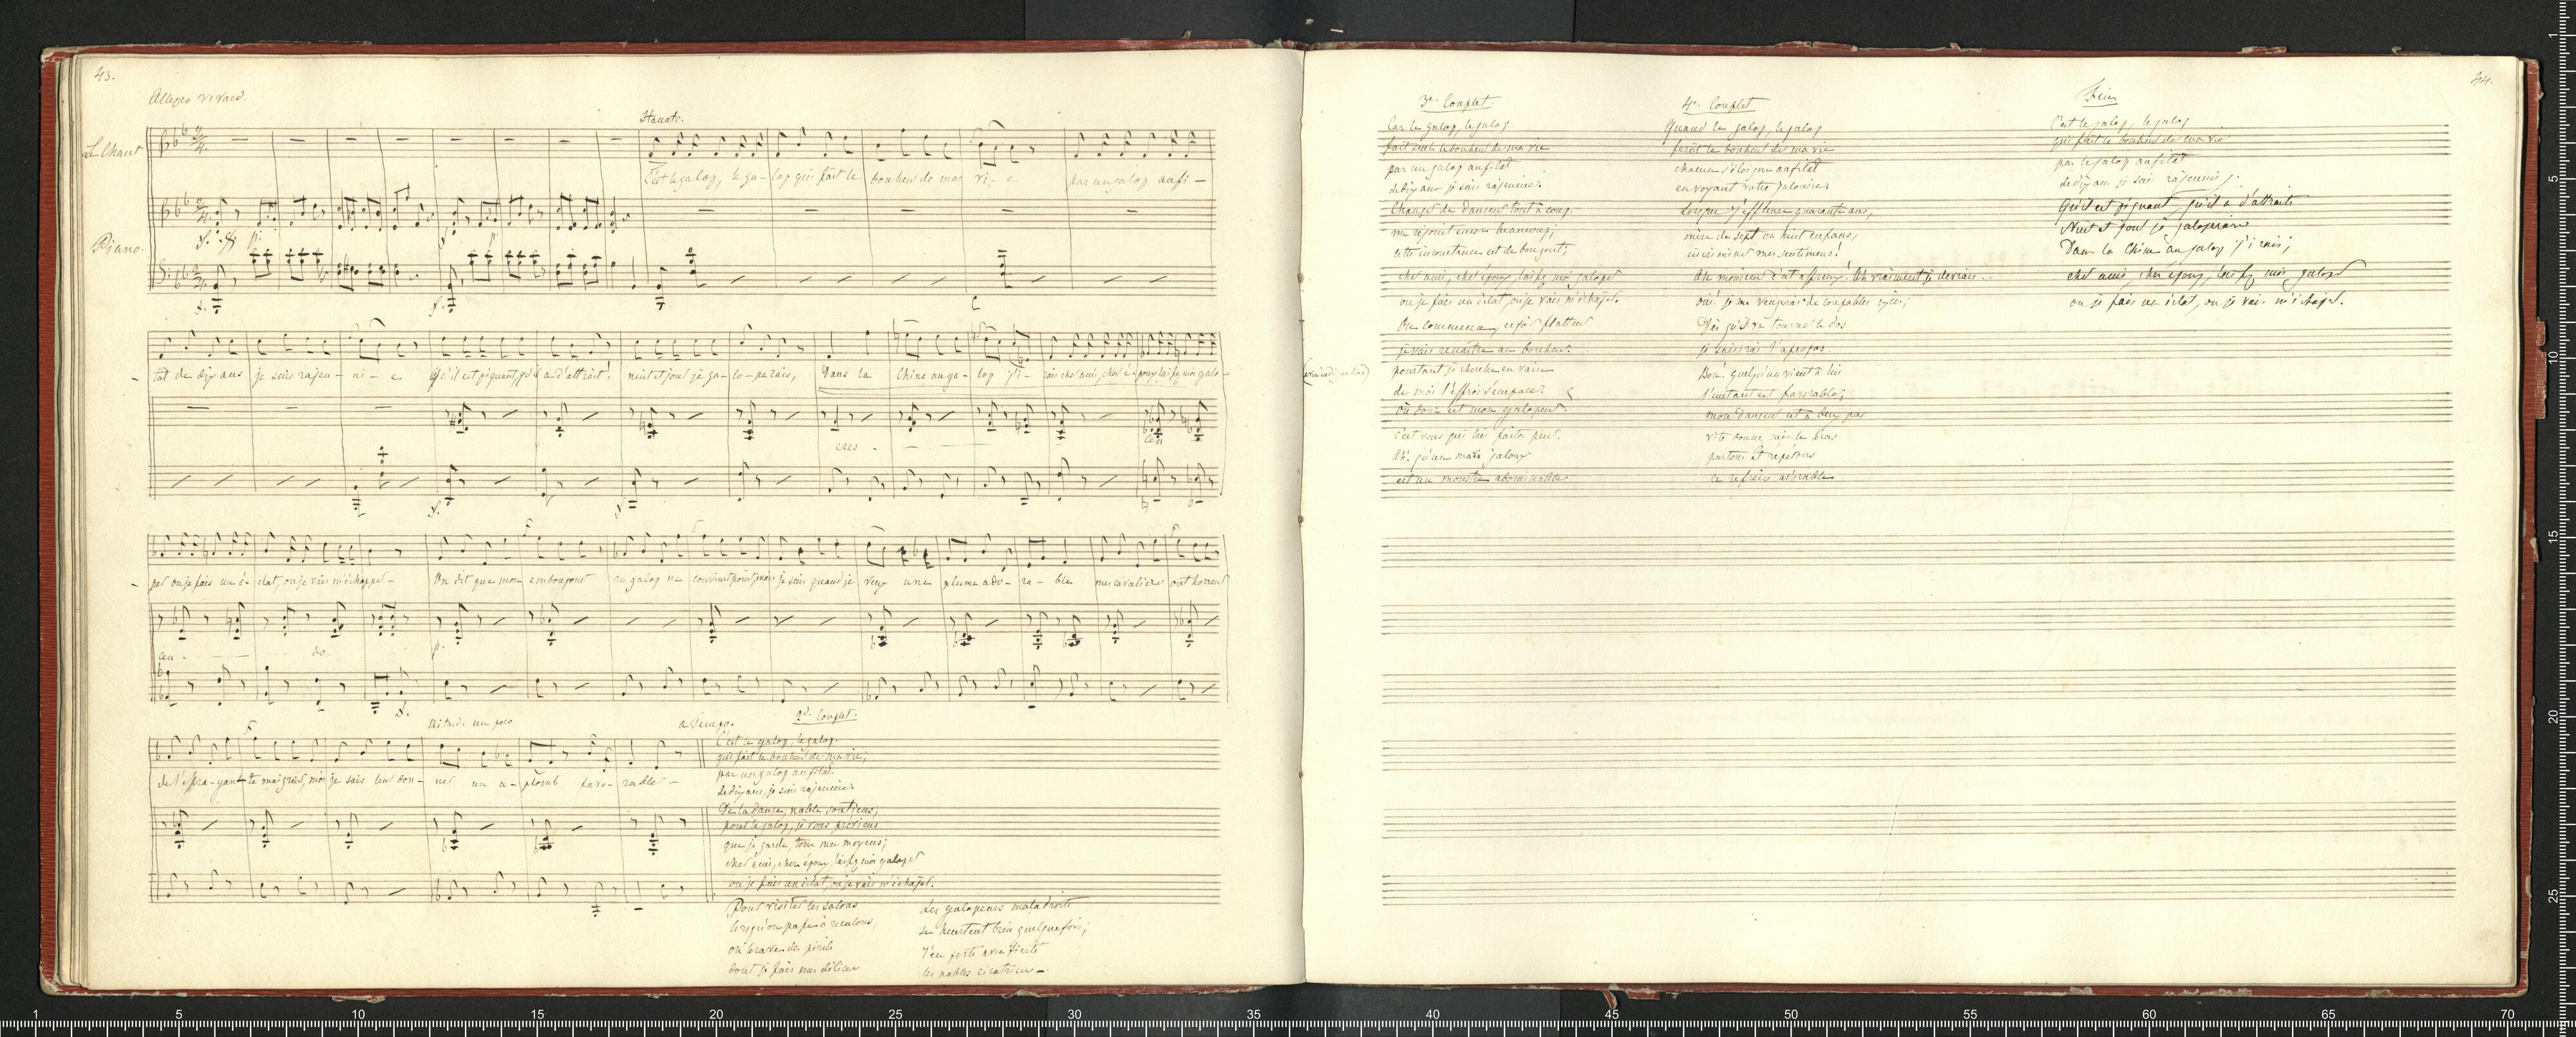 43.
Allegro vivace.
Le Chant
Piano.
C'est le galop, le ga- lop qui fait le bonheur de ma vi- e par un galop aufi-
f. p. p.
tôt de dix ans je suis rajeu- ni- e Qu'il est piquant, qu'il a d'attrait! nuit et jour je ga- lo- perais, Dans la Chine au ga- lop j'i- rais cher ami, cher é- poux laissez moi galo-
cres - cen
per ou je fais un é- clat, ou je vais m'échapper-
On dit que mon embonpoint au galop ne convient point, mais je suis quand je veux une plume ado- ra- ble mes cavaliers ont horreur
cen - do p.
Ritard. un poco
a Tempo.
de l'effra-yante maigreur, moi je sais leur don- ner un a- plomb favo- rable-
2d. Couplet.
C'est le galop, le galop.
qui fait le bonheur de ma vie;
par un galop aufitôt
de dix ans, je suis rajeunie.
De la danse, noble soutiens,
pour le galop, je vous préviens
que je garde tous mes moyens;
cher ami, cher époux, laissez moi galoper
ou je fais un éclat, ou je vais m'échaper.
Pour visiter les salons
lorsqu'on passe à reculons,
on brave des périls
dont je fais mes délices
des galopeurs maladroits
se heurtent bien quelquefois;
J'en porte avec fierté
les nobles cicatrices-.
44.
3e. Couplet.
Car le galop, le galop
fait seul le bonheur de ma vie
par un galop aufitôt
de dix ans je suis rajeunie.
Changer de danseur tout à coup
me réjouit encore beaucoup;
cette inconstance est de bon gout;
cher ami, cher époux, laissez moi galoper
ou je fais un éclat, ou je vais m'échaper.
On commence, espoir flatteur
je vais renaître au bonheur.
pourtant je cherche en vain
(avec indignation)
de moi l'effroi s'empare?
Où donc est mon galopeur.
c'est vous qui lui faites peur.
Ah! qu'un mari jaloux
est un monstre abominable
4e. Couplet
Quand le galop, le galop
feroit le bonheur de ma vie
chacun s'éloigne aufitôt
en voyant votre jalousie
Lorsque j'effleure quarante ans,
mère de sept ou huit enfans,
incriminer mes sentimens!
Ah monsieur c'est affreux! Ah vraiment je devrais..
oui! je me vengerai de coupables
Dès qu'il tourne le dos
je saisirai l'apropos.
Bon! quelqu'un vient à lui
l'instant est favorable;
mon danseur est à deux pas
vite donnez moi le bras
partons et répétons
ce refrain adorable
Fin
C'est le galop, le galop
qui fait le bonheur de ma vie
par le galop aufitôt
de dix ans je suis rajeunie.
Qu'il est piquant, qu'il a d'attraits
Nuit et jour je galoperais
Dans la Chine au galop j'irais;
cher ami, cher époux, laissez moi galoper
ou je fais un éclat, ou je vais m'échaper.